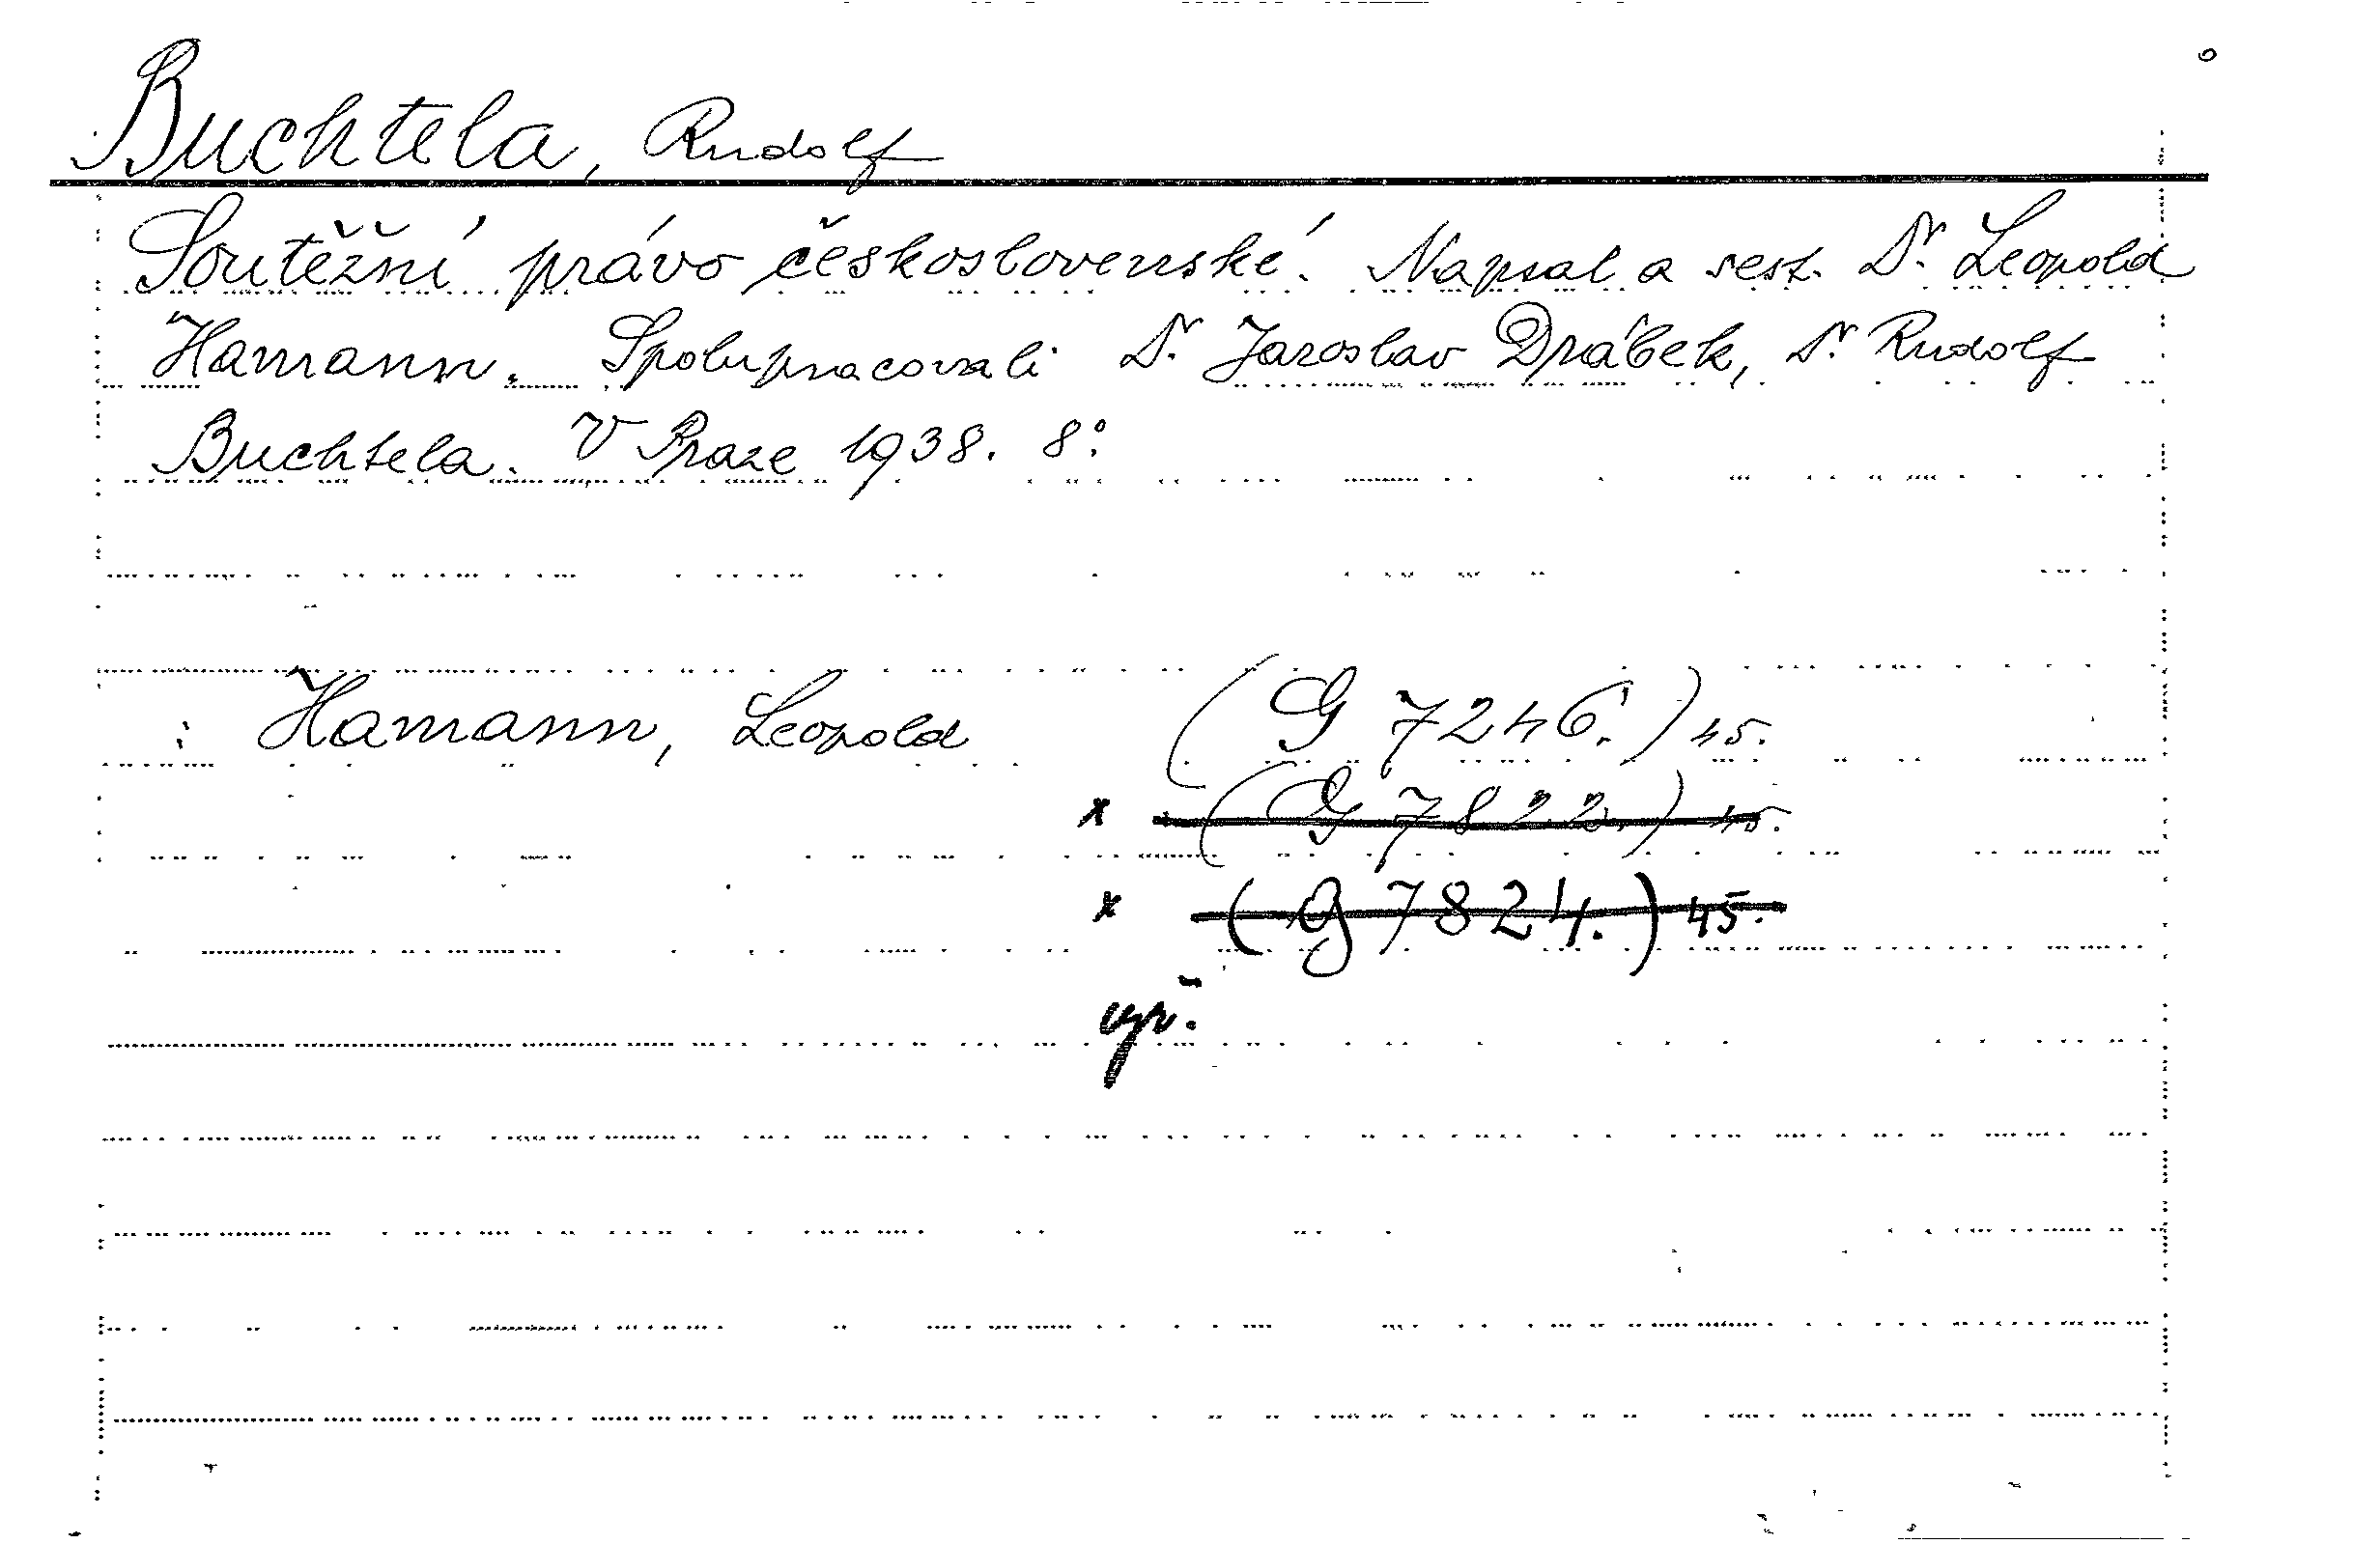 Buchtela, Rudolf
Soutěžní právo československé. Napsal a sest. Dr. Leopold
Hamann. Spolupracovali Dr. Jaroslav Drábek, Dr. Rudolf
Buchtela. V Praze 1938. 8°.
: Hamann, Leopold (G 7246.) 45.
x (G 7822.) 45.
x (G 7824.) 45.
vyř.